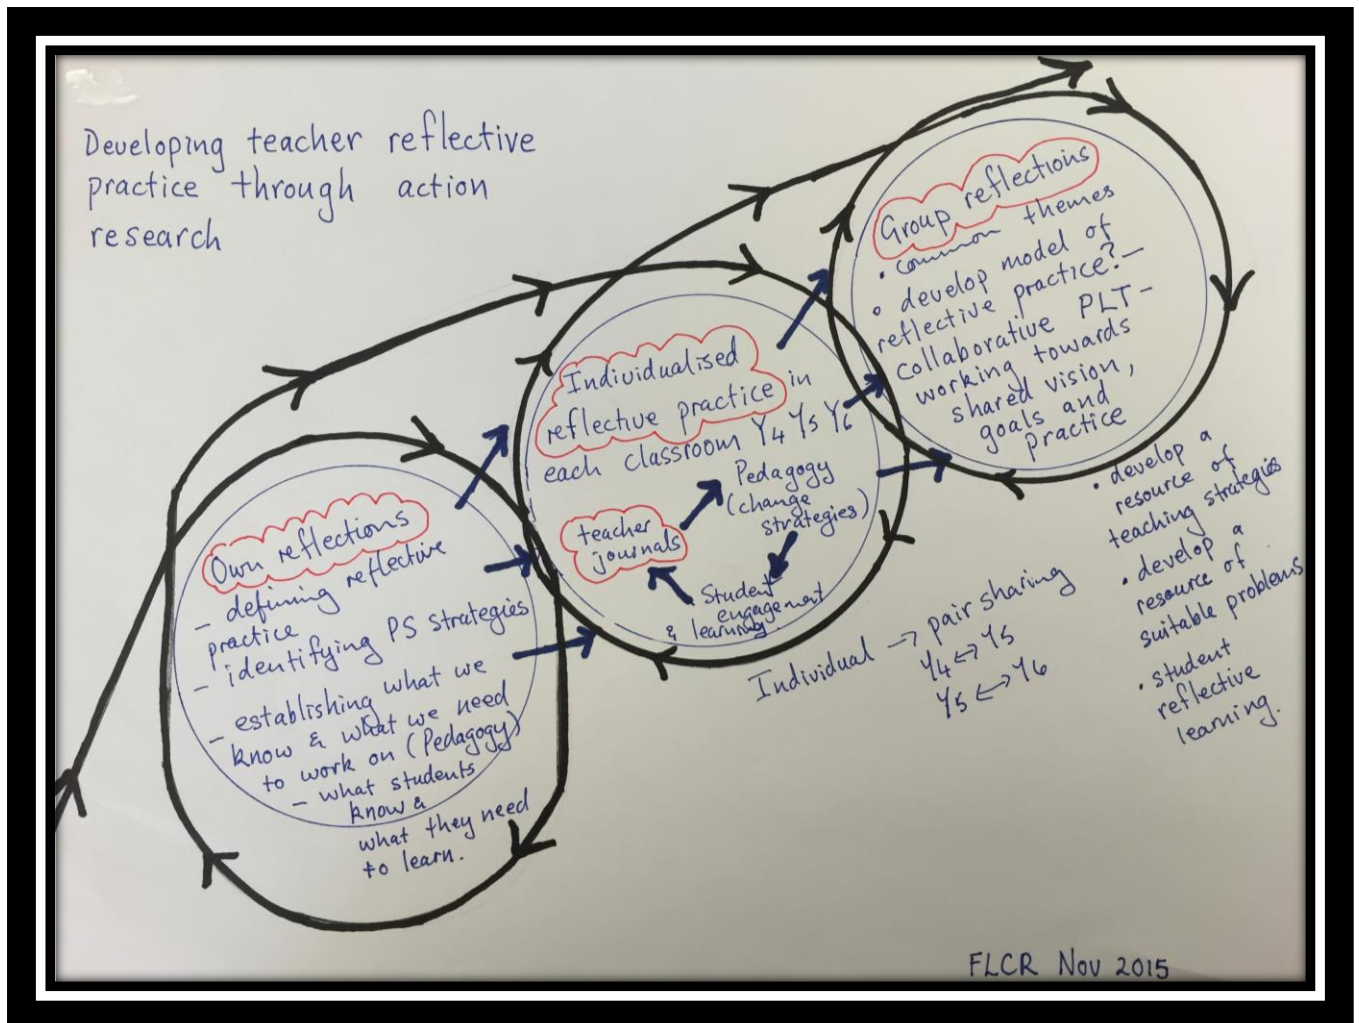 Developing teacher reflective
practice through action
research
Own reflections
- defining reflective
practice
- identifying PS strategies
- establishing what we
know & what we need
to work on (Pedagogy)
- what students
know &
what they need
to learn.
Individualised
reflective practice in
each classroom Y4 Y5 Y6
Pedagogy
(change
strategies)
teacher
journals
Student
engagement
& learning.
Individual → pair sharing
Y4 ↔ Y5
Y5 ↔ Y6
Group reflections
• common themes
• develop model of
reflective practice? -
collaborative PLT -
working towards
shared vision,
goals and
practice
• develop a
resource of
teaching strategies
• develop a
resource of
suitable problems
• student
reflective
learning.
FLCR Nov 2015